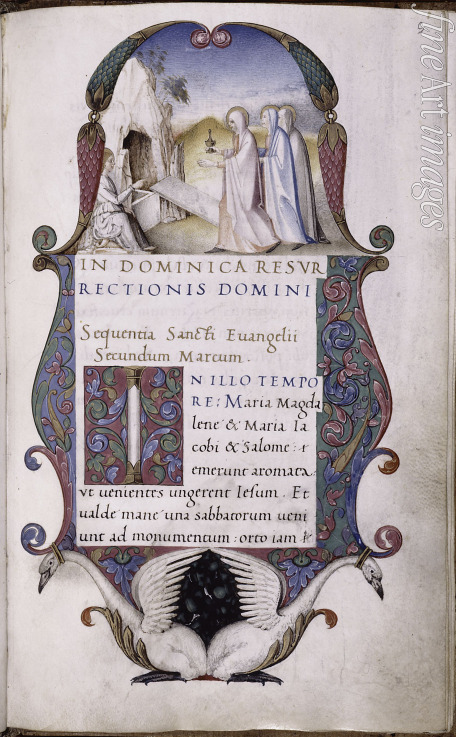 IN DOMINICA RESVR
RECTIONIS DOMINI
Sequentia Sancti Evangelii
Secundum Marcum.
IN ILLO TEMPO
RE: Maria Magda
lene & Maria Ia
cobi & Salome:
emerunt aromata.
vt uenientes ungerent Iesum. Et
ualde mane una sabbatorum ueni
unt ad monumentum: orto iam
fine Art images